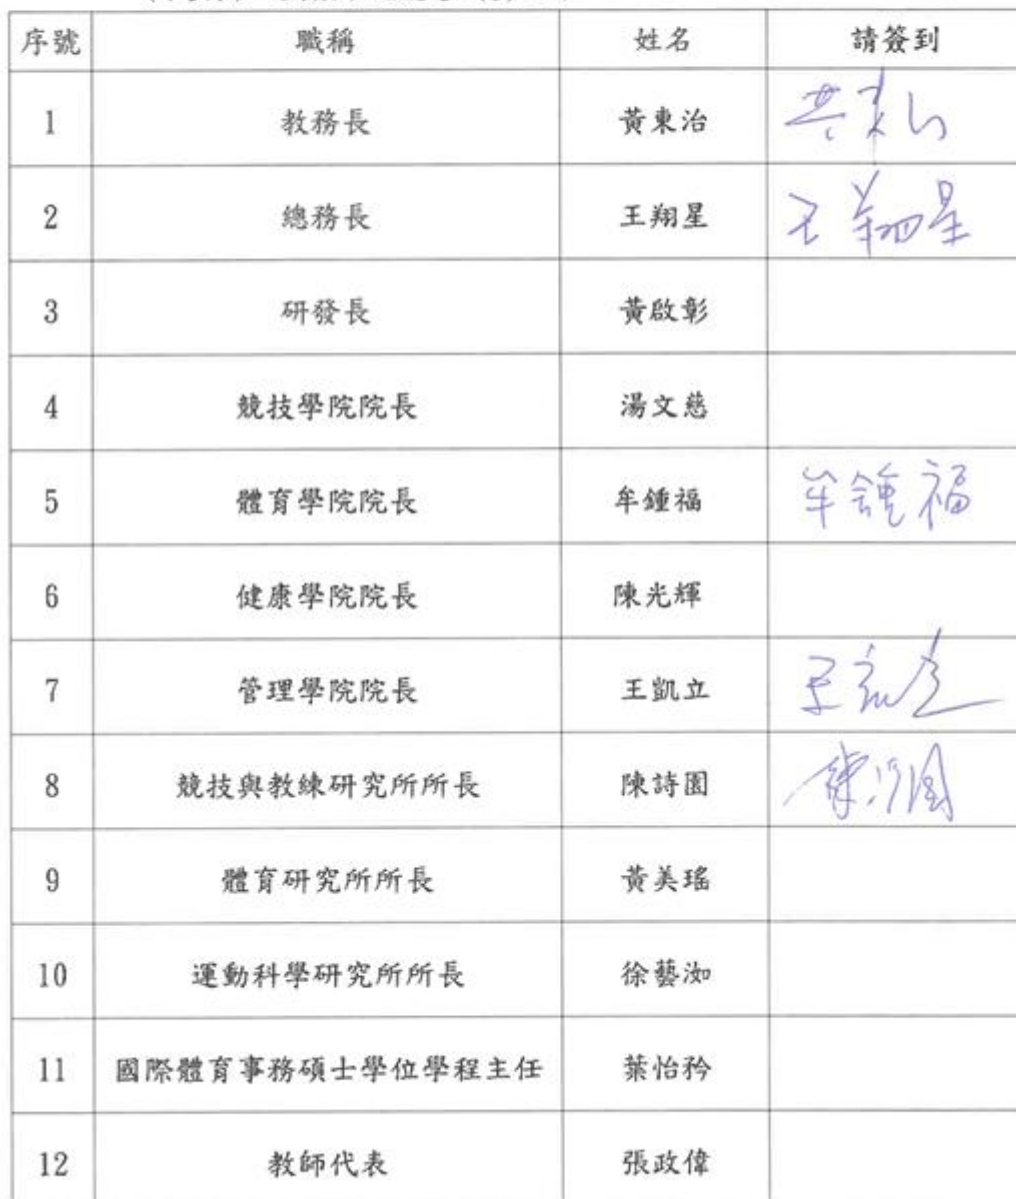 序號 職稱 姓名 請簽到
1 教務長 黃東治
2 總務長 王翔星 王翔星
3 研發長 黃啟彰
4 競技學院院長 湯文慈
5 體育學院院長 牟鍾福 牟鍾福
6 健康學院院長 陳光輝
7 管理學院院長 王凱立
8 競技與教練研究所所長 陳詩園
9 體育研究所所長 黃美瑤
10 運動科學研究所所長 徐藝洳
11 國際體育事務碩士學位學程主任 葉怡矜
12 教師代表 張政偉